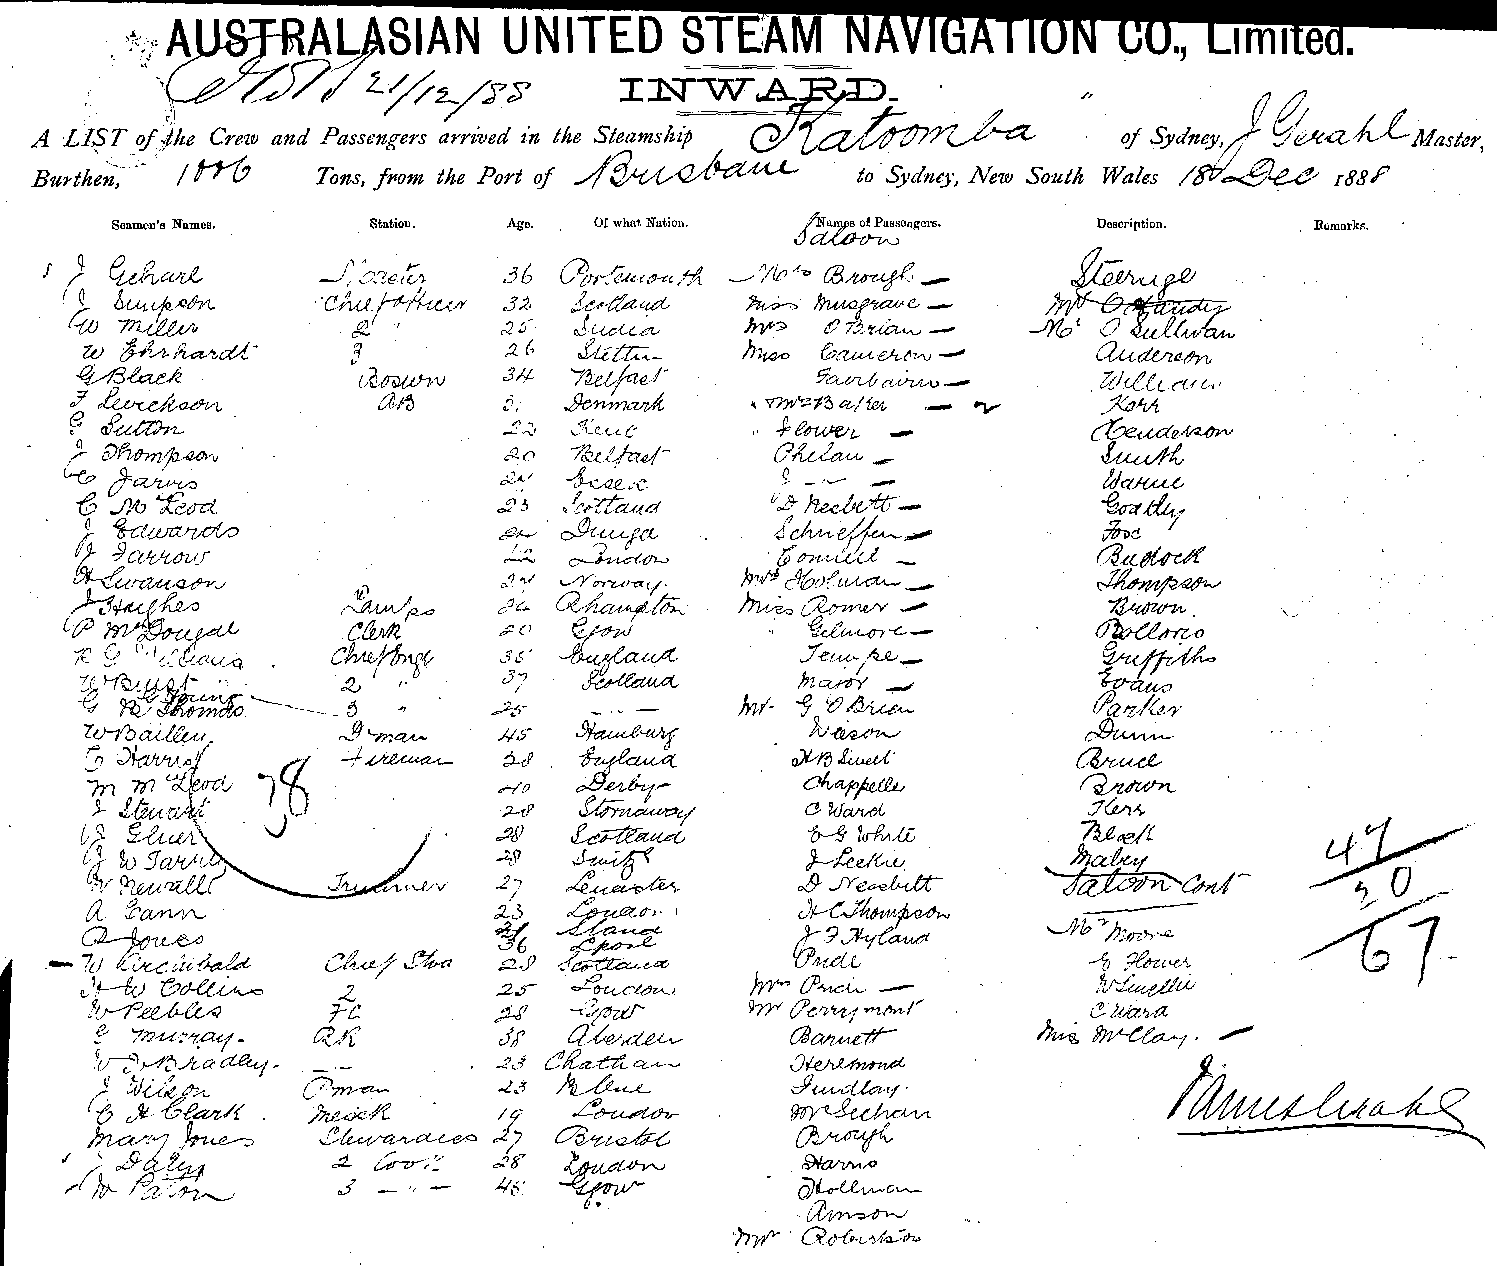 AUSTRALASIAN UNITED STEAM NAVIGATION CO., Limited.
21/12/88
INWARD.
A LIST of the Crew and Passengers arrived in the Steamship Katoomba of Sydney, J Gerahl Master,
Burthen, 1006 Tons, from the Port of Brisbane to Sydney, New South Wales 18 Dec 1888
Seamen's Names. Station. Age. Of what Nation. Names of Passengers. Description. Remarks.
Saloon
J Gerahl Master 36 Portsmouth Mrs Brough — Steerage
J Simpson Chief officer 32 Scotland Miss Musgrave —
W Miller 2 " 25 India Mrs O'Brian — Mr O Sullivan
W Ehrhardt 3 26 Stettin Miss Cameron — Anderson
G Black Bosun 34 Belfast Fairbairn — William
F Levickson AB Denmark Mrs Baker — Kerr
G Sutton 22 Kent " Flower — Henderson
J Thompson 20 Belfast Phelan — Smith
C Jarvis 24 Essex Warne
C McLeod 23 Scotland D Nesbett —
J Edwards Schrieffen — Fox
J Farrow 22 London — Budock
H Swanson 24 Norway. Mrs Holman — Thompson
J Hughes Lamps 24 Miss Romer — Brown
P McDougal Clerk 20 Ggow " Gilmore —
R G Williams Chief Engr 35 England Tempe — Griffiths
W Burst 2 " 37 Scotland Major — Evans
G R Thomas 3 " 25 — " — Mr G O'Brien Parker
W Baillen Dman 45 Hamburg Wason Dunn
C Harris Fireman 28 England H B Swett Bruce
M McLeod 78 40 Derby Chappelle Brown
J Stewart 28 Stornaway C Ward Kerr
J Gluer 28 Scotland E G White Black
J W Tarry 28 Switz J Leckie Mabry 47
W Newall Trimmer 27 Leicester D Nesbitt Saloon Cont 20
A Cann 23 London H C Thompson
R Jones 36 Lpool J F Hyland Mr Moore
— W Archibald Chief Stwd 28 Scotland Pride E Flower 67
H W Collins 2 25 London Mrs Pride — W Smellie
W Peebles FC 28 Ggow Mr Perrymont C Ward
G Murray PK 38 Aberdeen Barnett Miss McClay. —
W J Bradley. — — 23 Chatham Heremond
J Wilson Pman 23 Findlay.
C H Clark Messk 19 London McSeehan
Mary Jones Stewardess 27 Bristol Brough
Daley 2 Cook 28 London Harris
W Paton 3 — " — 45 Ggow Hollman
Amson
Mr Robertson